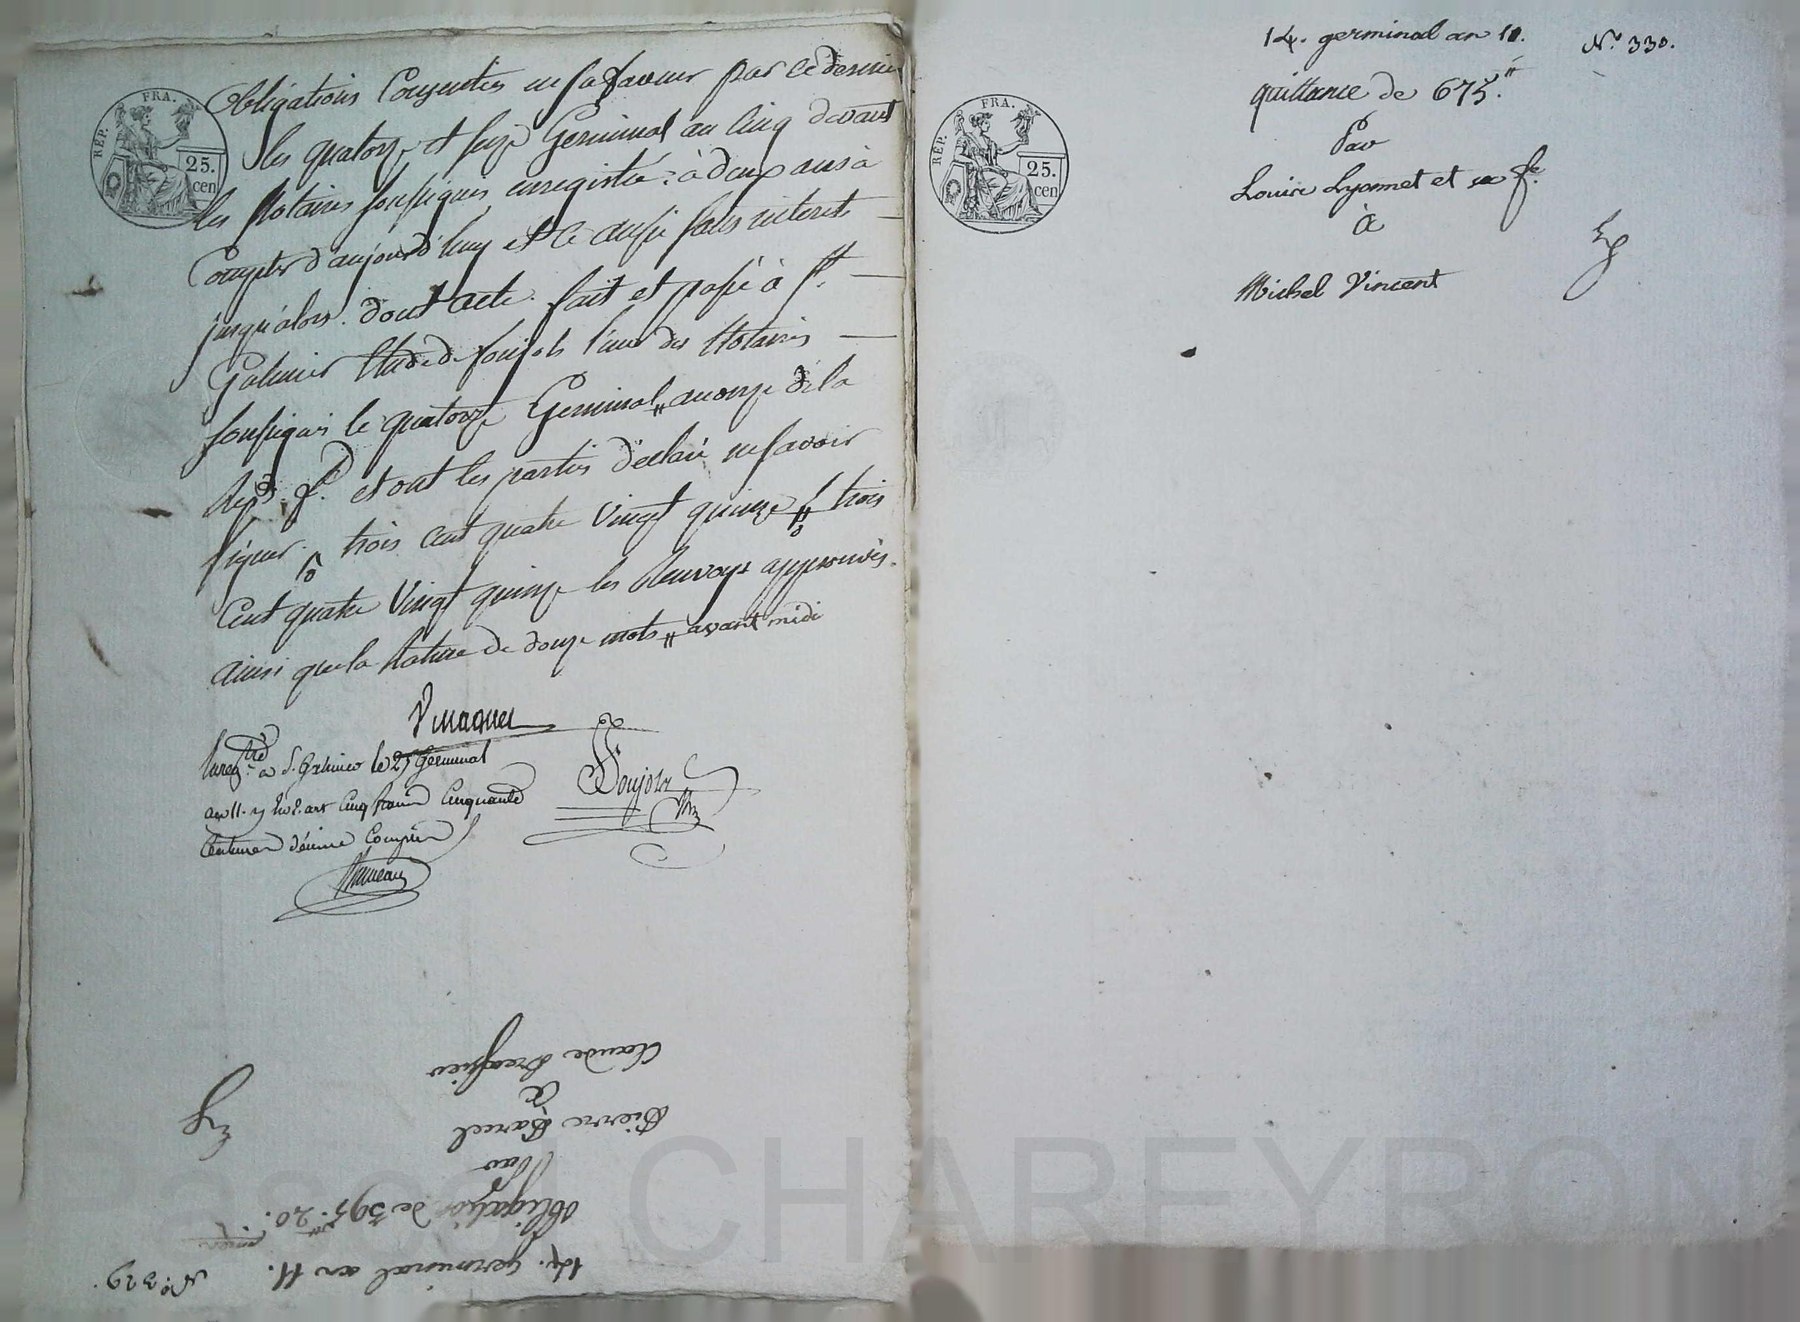 RÉP. FRA.
25.
cen
obligations Consenties en sa faveur par ce dernier
les quatorze et seize Germinal an cinq devant
les Notaires soussignés enregistrée: à deux ans à
Compter d'aujourd'huy et ce aussi sans interets
jusqu'alors. dont acte. fait et passé à St.
Galmier Etude de soujols l'un des Notaires
soussignés le quatorze Germinal " an onze de la
Rep. f. et ont les parties déclaré ne savoir
signer. trois cent quatre vingt quinze trois
Cent quatre vingt quinze les Renvoys approuvés.
ainsi que la Rature de douze mots " avant midi
Vmagnet
Enregtré a St. Galmier le 25 Germinal
an 11. cinq francs Cinquante
Centimes dixième Compris
Soujols
Claude
à
Pierre Barcel
Par
obligation de 395.tt 20.s
14. germinal an 11.
N.o 329.
RÉP. FRA.
25.
cen
14. germinal an 11.
N.o 330.
quittance de 675.tt
Par
Louise Lyonnet et sa f.e
à
Michel Vincent
Pascal CHAREYRON